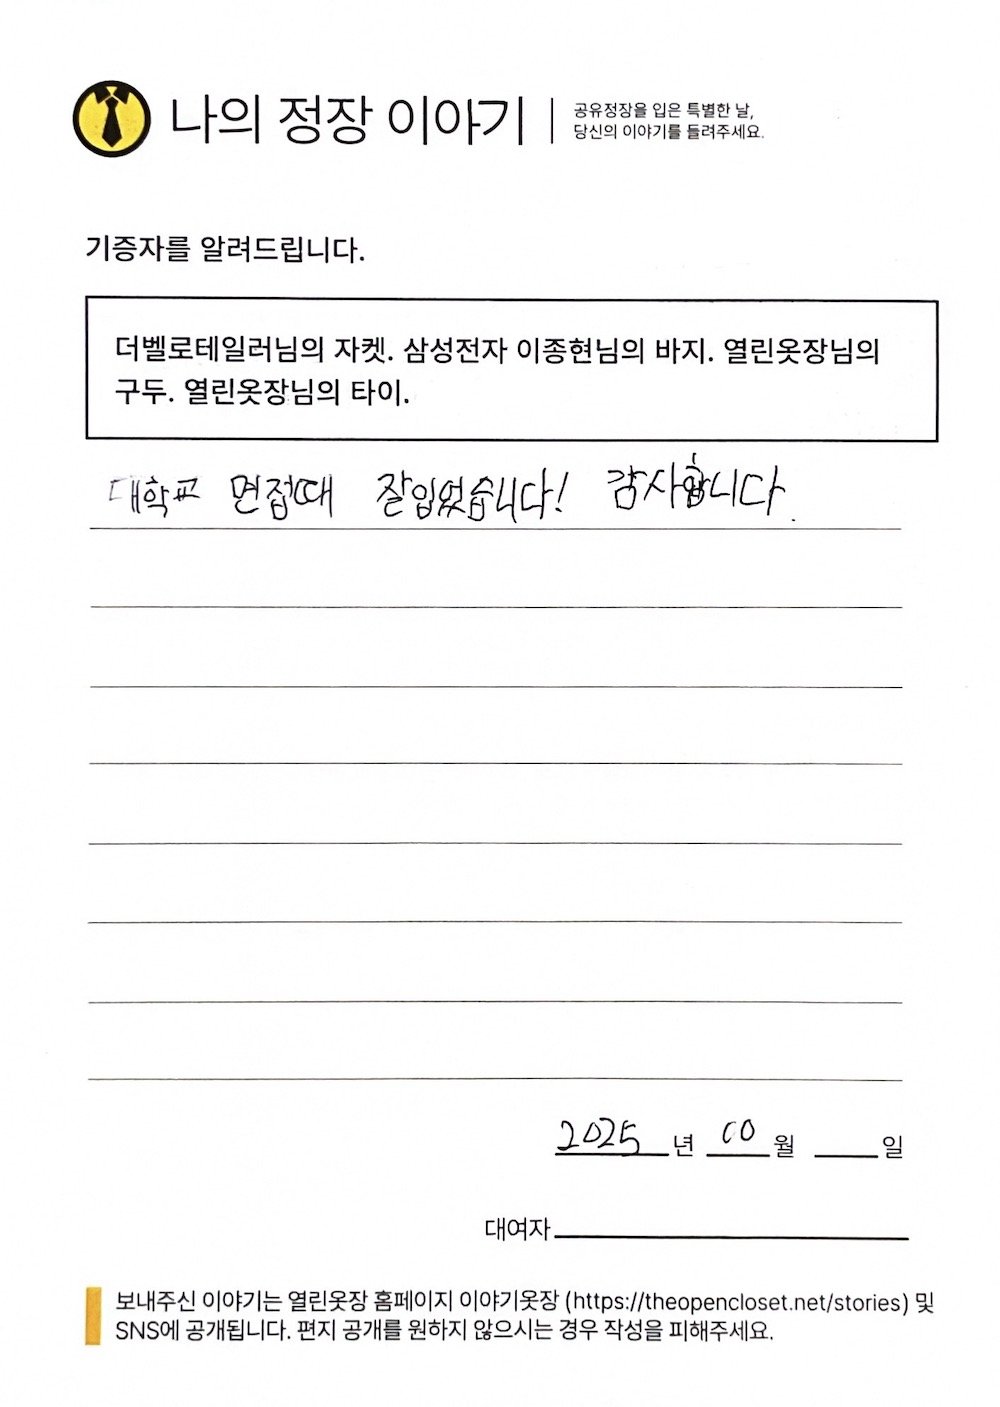 나의 정장 이야기
공유정장을 입은 특별한 날,
당신의 이야기를 들려주세요.
기증자를 알려드립니다.
더벨로테일러님의 자켓. 삼성전자 이종현님의 바지. 열린옷장님의
구두. 열린옷장님의 타이.
대학교 면접때 잘입었습니다! 감사합니다.
2025 년 10 월 일
대여자
보내주신 이야기는 열린옷장 홈페이지 이야기옷장 (https://theopencloset.net/stories) 및
SNS에 공개됩니다. 편지 공개를 원하지 않으시는 경우 작성을 피해주세요.